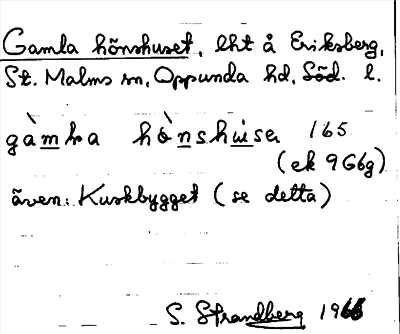 Gamla hönshuset, lht å Eriksberg,
St. Malms sn, Oppunda hd, Söd. l.
gàmla hònshusə 165
(ek 9G6g)
även: Kuskbygget (se detta)
S. Strandberg 1966